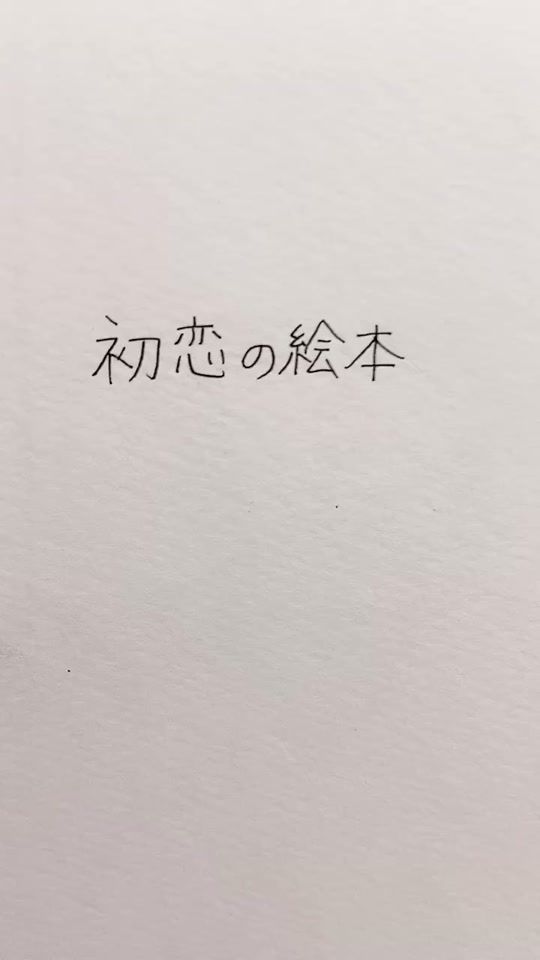 初恋の絵本